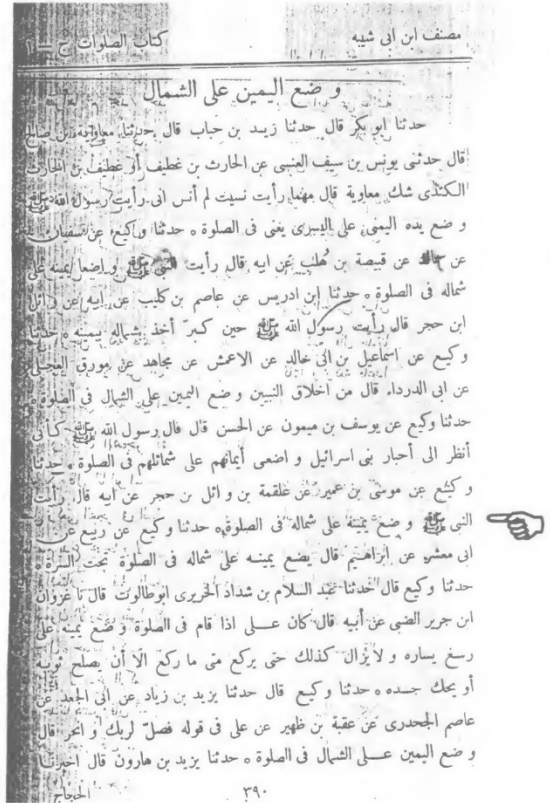 مصنف ابن ابى شيبه
كتاب الصلوات ج
و ضع اليمين على الشمال
حدثنا ابو بكر قال حدثنا زيد بن حباب قال حدثنا معاوية بن صالح
قال حدثنى يونس بن سيف العنسى عن الحارث بن غطيف أو غطيف بن الحارث
الكندى شك معاوية قال مهما رأيت نسيت لم أنس انى رأيت رسول الله ﷺ
و ضع يده اليمنى على اليسرى يعنى فى الصلوة ٥ حدثنا وكيع عن سفيان
عن عن قبيصة بن هلب عن ابيه قال رأيت النبى ﷺ و اضعا يمينه على
شماله فى الصلوة ٥ حدثنا ابن ادريس عن عاصم بن كليب عن ابيه عن وائل
ابن حجر قال رأيت رسول الله ﷺ حين كبر أخذ شماله بيمينه ٥ حدثنا
وكيع عن اسماعيل بن ابى خالد عن الاعمش عن مجاهد عن مورق العجلى
عن ابى الدرداء قال من اخلاق النبيين و ضع اليمين على الشمال فى الصلوة ٥
حدثنا وكيع عن يوسف بن ميمون عن الحسن قال قال رسول الله ﷺ كأنى
أنظر الى أحبار بنى اسرائيل و اضعى أيمانهم على شمائلهم فى الصلوة ٥ حدثنا
و كيع عن موسى بن عمير عن علقمة بن و ائل بن حجر عن ابيه قال رأيت
النبى ﷺ و ضع يمينه على شماله فى الصلوة ٥ حدثنا وكيع عن ربيع عن
ابى معشر عن ابراهيم قال يضع يمينه على شماله فى الصلوة تحت السرة ٥
حدثنا وكيع قال حدثنا عبد السلام بن شداد الحريرى ابوطالوت قال نا غزوان
ابن جرير الضبى عن أبيه قال كان عــلى اذا قام فى الصلوة و ضع يمينه على
رسغ يساره و لا يزال كذلك حتى يركع متى ما ركع الا أن يصلح ثوبه
أو يحك جسده ٥ حدثنا وكيع قال حدثنا يزيد بن زياد عن ابى الجعد عن
عاصم الجحدرى عن عقبة بن ظهير عن على فى قوله فصلّ لربك و انحر قال
و ضع اليمين عــلى الشمال فى الصلوة ٥ حدثنا يزيد بن هارون قال اخبرنا
الحجاج
٣٩٠